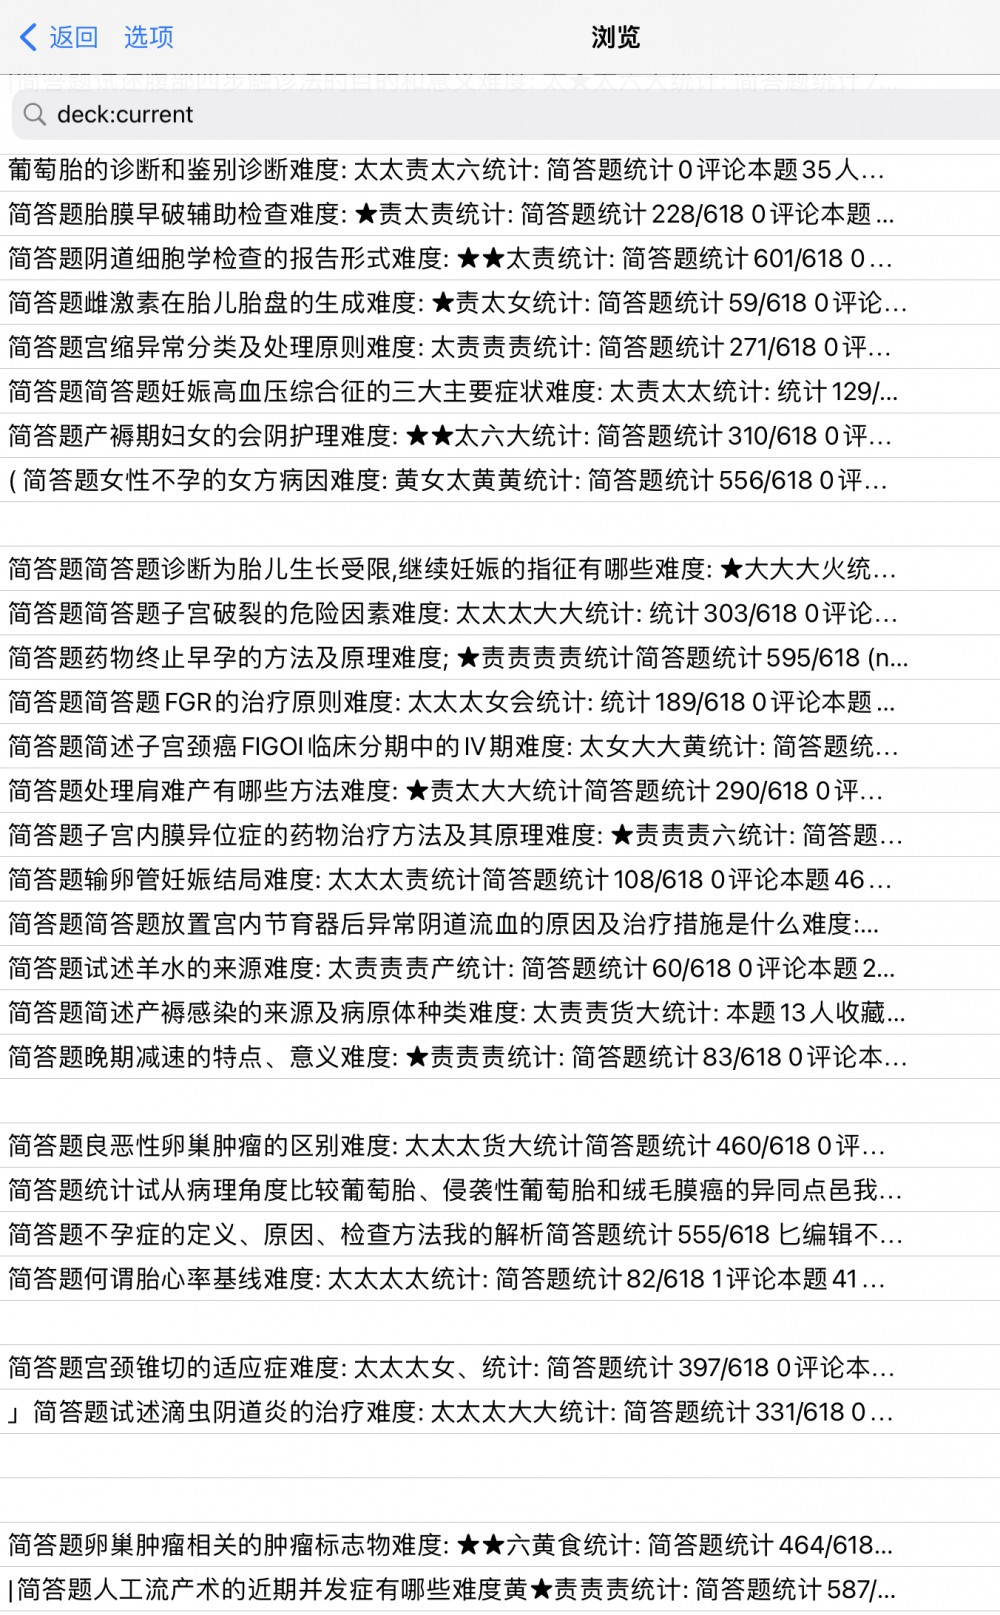 返回 选项 浏览
deck:current
葡萄胎的诊断和鉴别诊断难度: 太太责太六统计: 简答题统计0评论本题35人...
简答题胎膜早破辅助检查难度: ★责太责统计: 简答题统计228/618 0评论本题...
简答题阴道细胞学检查的报告形式难度: ★★太责统计: 简答题统计601/618 0...
简答题雌激素在胎儿胎盘的生成难度: ★责太女统计: 简答题统计59/618 0评论...
简答题宫缩异常分类及处理原则难度: 太责责责统计: 简答题统计271/618 0评...
简答题简答题妊娠高血压综合征的三大主要症状难度: 太责太太统计: 统计129/...
简答题产褥期妇女的会阴护理难度: ★★太六大统计: 简答题统计310/618 0评...
( 简答题女性不孕的女方病因难度: 黄女太黄黄统计: 简答题统计556/618 0评...
简答题简答题诊断为胎儿生长受限,继续妊娠的指征有哪些难度: ★大大大火统...
简答题简答题子宫破裂的危险因素难度: 太太太大大统计: 统计303/618 0评论...
简答题药物终止早孕的方法及原理难度; ★责责责责统计简答题统计595/618 (n...
简答题简答题FGR的治疗原则难度: 太太太女会统计: 统计189/618 0评论本题...
简答题简述子宫颈癌FIGOI临床分期中的IV期难度: 太女大大黄统计: 简答题统...
简答题处理肩难产有哪些方法难度: ★责太大大统计简答题统计290/618 0评...
简答题子宫内膜异位症的药物治疗方法及其原理难度: ★责责责六统计: 简答题...
简答题输卵管妊娠结局难度: 太太太责统计简答题统计108/618 0评论本题46...
简答题简答题放置宫内节育器后异常阴道流血的原因及治疗措施是什么难度:...
简答题试述羊水的来源难度: 太责责责产统计: 简答题统计60/618 0评论本题2...
简答题简述产褥感染的来源及病原体种类难度: 太责责货大统计: 本题13人收藏...
简答题晚期减速的特点、意义难度: ★责责责统计: 简答题统计83/618 0评论本...
简答题良恶性卵巢肿瘤的区别难度: 太太太货大统计简答题统计460/618 0评...
简答题统计试从病理角度比较葡萄胎、侵袭性葡萄胎和绒毛膜癌的异同点邑我...
简答题不孕症的定义、原因、检查方法我的解析简答题统计555/618 匕编辑不...
简答题何谓胎心率基线难度: 太太太太统计: 简答题统计82/618 1评论本题41...
简答题宫颈锥切的适应症难度: 太太太女、统计: 简答题统计397/618 0评论本...
」简答题试述滴虫阴道炎的治疗难度: 太太太大大统计: 简答题统计331/618 0...
简答题卵巢肿瘤相关的肿瘤标志物难度: ★★六黄食统计: 简答题统计464/618...
|简答题人工流产术的近期并发症有哪些难度黄★责责责统计: 简答题统计587/...